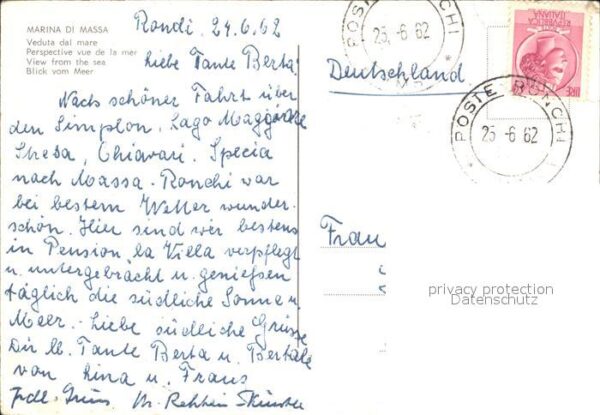 MARINA DI MASSA
Veduta dal mare
Perspective vue de la mer
View from the sea
Blick vom Meer
Ronchi, 24.6.62
Liebe Tante Berta!
Nach schöner Fahrt über
den Simplon, Lago Maggiore
Stresa, Chiavari, Specia
nach Massa-Ronchi war
bei bestem Wetter wunder-
schön. Hier sind wir bestens
in Pension la Villa verpflegt
u. untergebracht u. genießen
täglich die südliche Sonne u.
Meer. Liebe südliche Grüsse
Dir lb. Tante Berta u. Bertale
von Lina u. Franz
frdl. Grüss
Deutschland
Frau
POSTE RONCHI
25 -6 62
RONCHI
25 -6 62
REPUBBLICA
ITALIANA
LIRE
privacy protection
Datenschutz